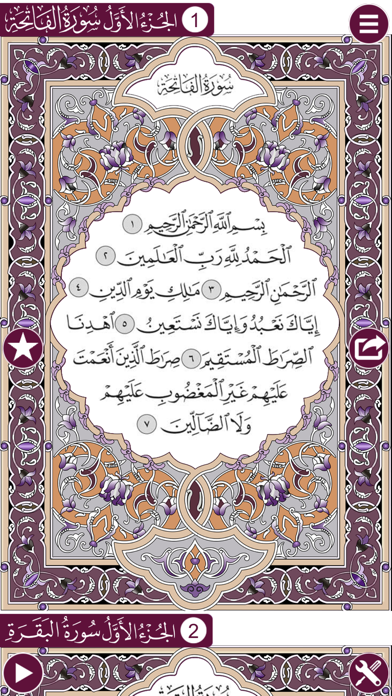 الجزء الأول سورة الفاتحة 1
سُورَةُ الفَاتِحَةِ
بِسْمِ ٱللَّهِ ٱلرَّحْمَٰنِ ٱلرَّحِيمِ ١
ٱلْحَمْدُ لِلَّهِ رَبِّ ٱلْعَٰلَمِينَ ٢
ٱلرَّحْمَٰنِ ٱلرَّحِيمِ ٣ مَٰلِكِ يَوْمِ ٱلدِّينِ ٤
إِيَّاكَ نَعْبُدُ وَإِيَّاكَ نَسْتَعِينُ ٥ ٱهْدِنَا
ٱلصِّرَٰطَ ٱلْمُسْتَقِيمَ ٦ صِرَٰطَ ٱلَّذِينَ أَنْعَمْتَ
عَلَيْهِمْ غَيْرِ ٱلْمَغْضُوبِ عَلَيْهِمْ
وَلَا ٱلضَّآلِّينَ ٧
الجزء الأول سورة البقرة 2